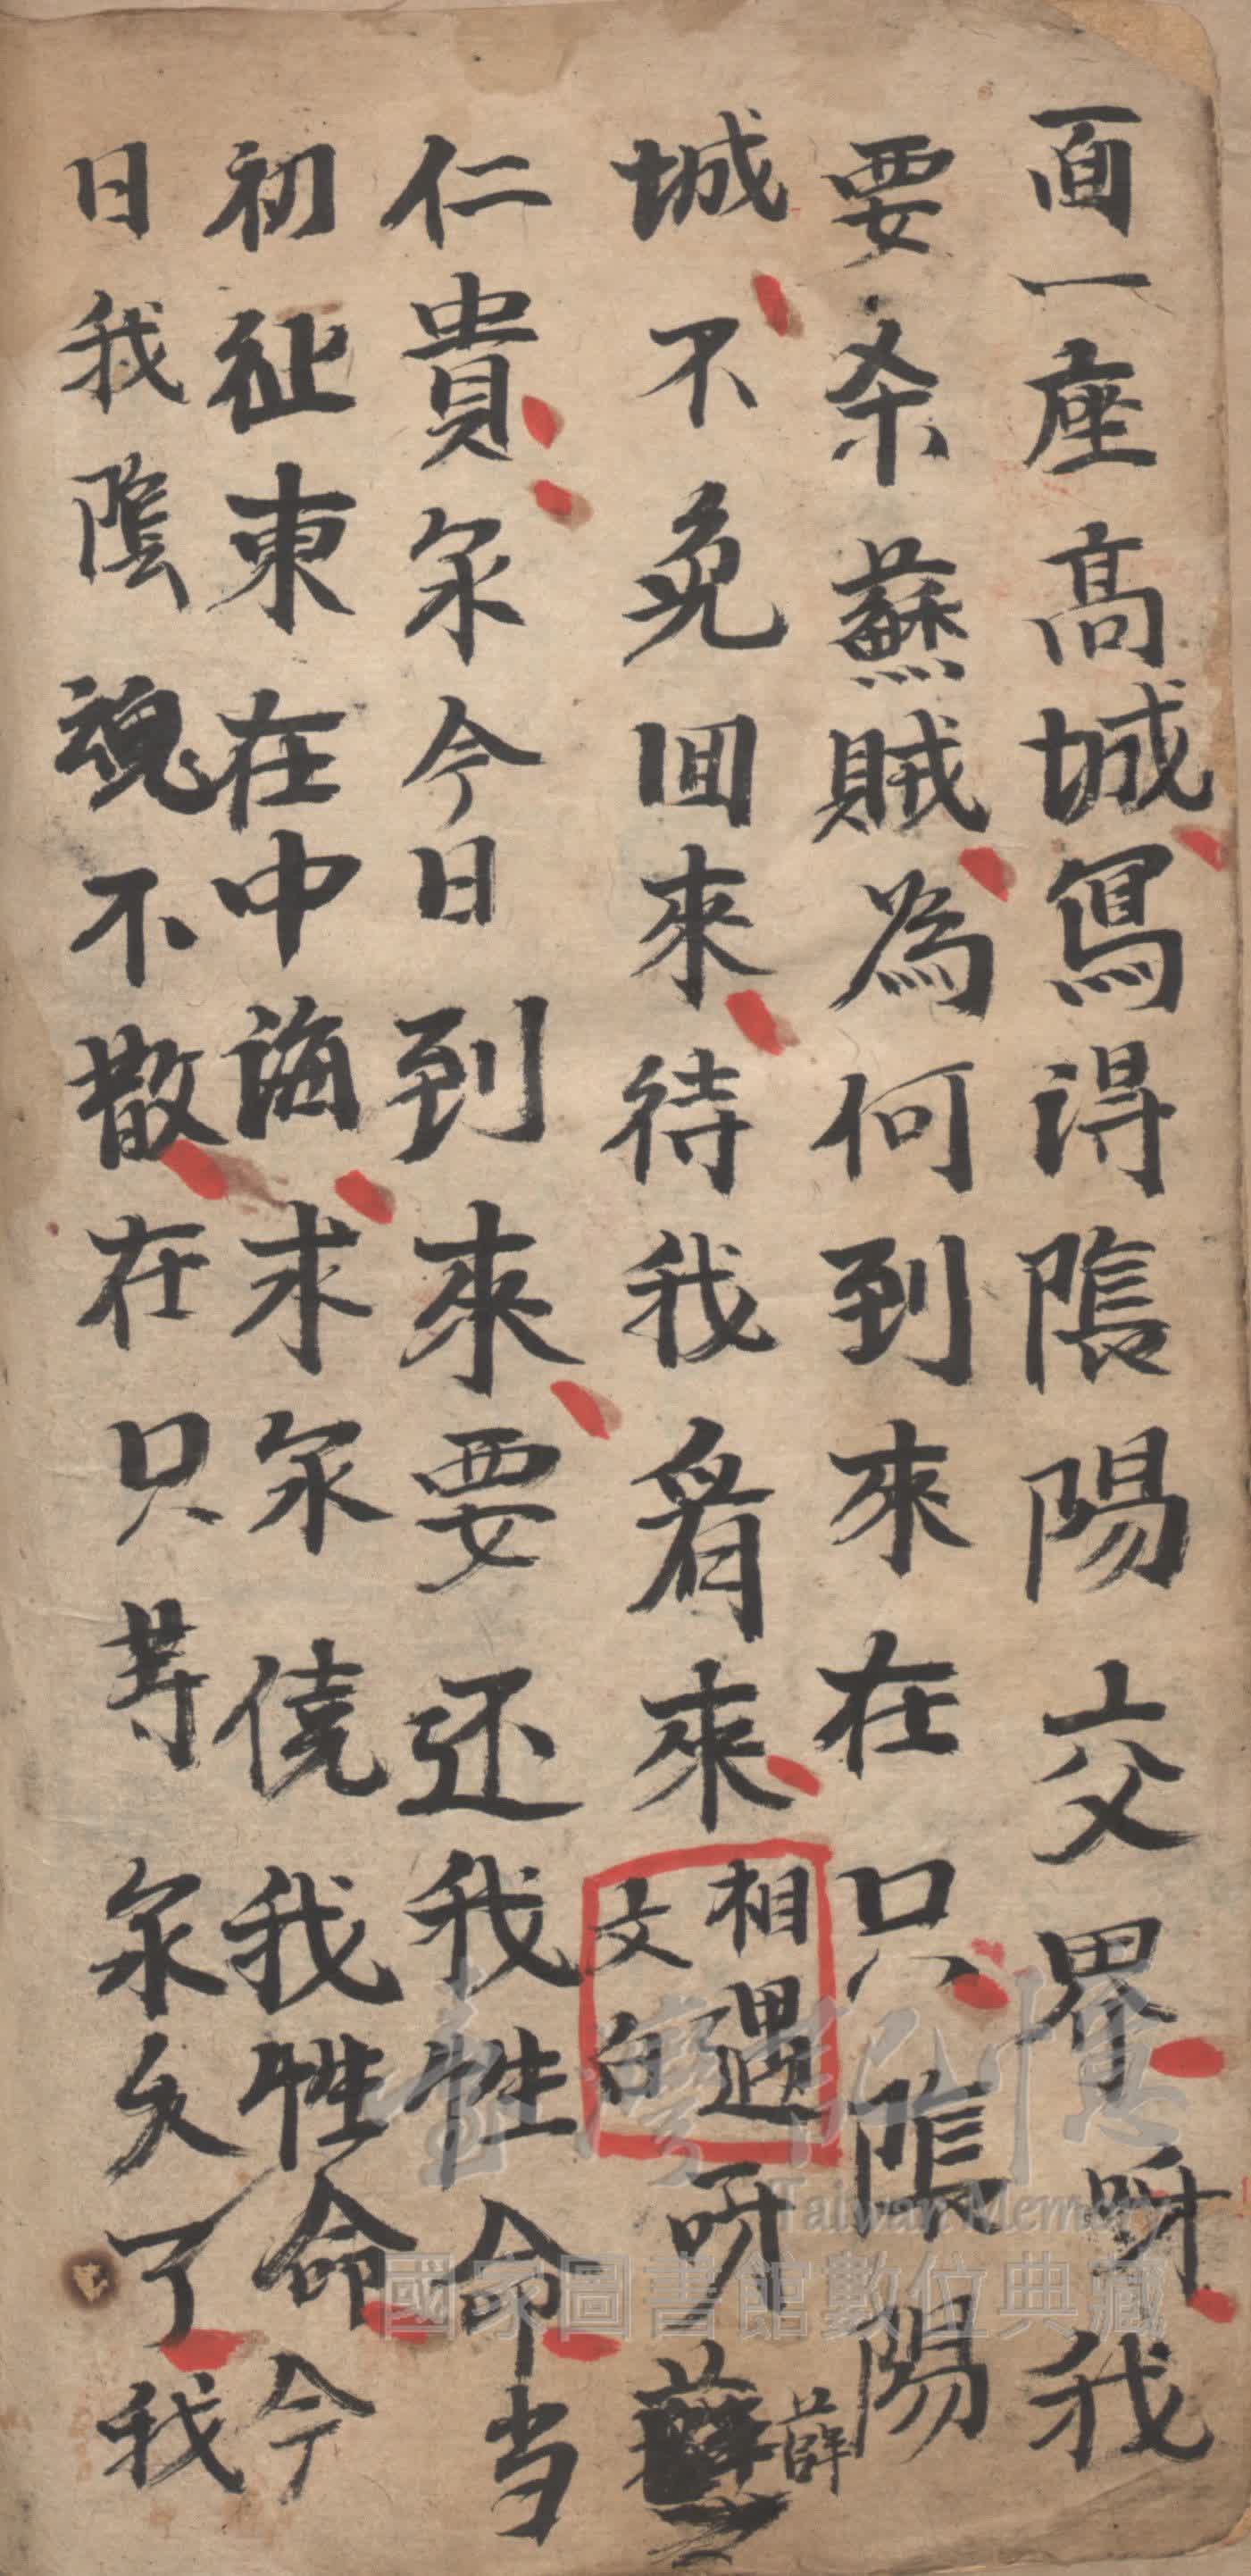 面一座高城寫得陰陽交界呀我
要杀蘇賊為何到來在只陰陽
城不免回來待我看來
相遇
文白
呀薛
仁貴尔今日到來要还我性命当
初征東在中海求尔僥我性命今
日我陰魂不散在只等尔久了我
Taiwan Memory
國家圖書館數位典藏